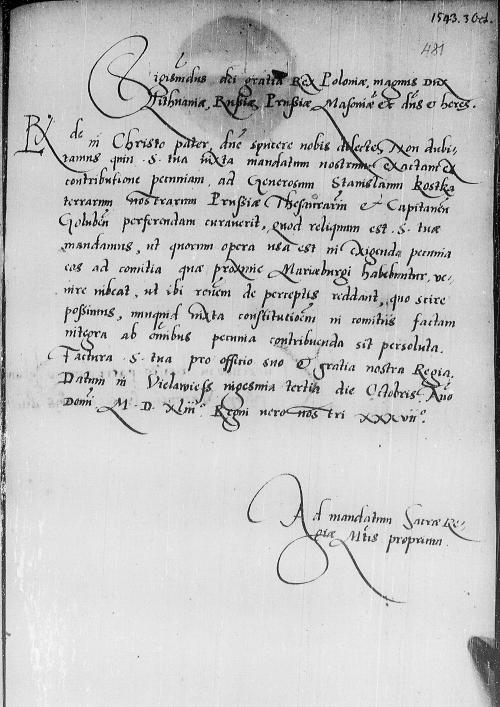 1543. 3 Oct.
481
Sigismundus dei gratia Rex Poloniæ, magnus Dux
Lithuaniæ, Rußiæ, Prußiæ, Masoniæ etc dns et heres.
Rde in Christo pater, dne syncere nobis dilecte. Non dubi-
tamus quin S. tua iuxta mandatum nostrum exactam ex
contributione pecuniam, ad Generosum Stanislaum Kostka
terrarum nostrarum Prußiæ Thesaurariu et Capitaneu
Goluben perferendam curaverit, quod reliquum est S. tuæ
mandamus, ut quorum opera usa est in exigenda pecunia
eos ad comitia quæ proxime Mariæburgi habebuntur, ve-
nire iubeat, ut ibi ronem de perceptis reddant, quo scire
poßimus, nunquid iuxta constitutioem in comitiis factam
integra ab omnibus pecunia contribuenda sit persoluta.
Factura S. tua pro officio suo et gratia nostra Regia.
Datum in die Octobris Ano
Domi M. D. Xliii. Regni vero nostri xxxvii°.
Ad mandatum Sacræ Re-
giæ Mtis proprium